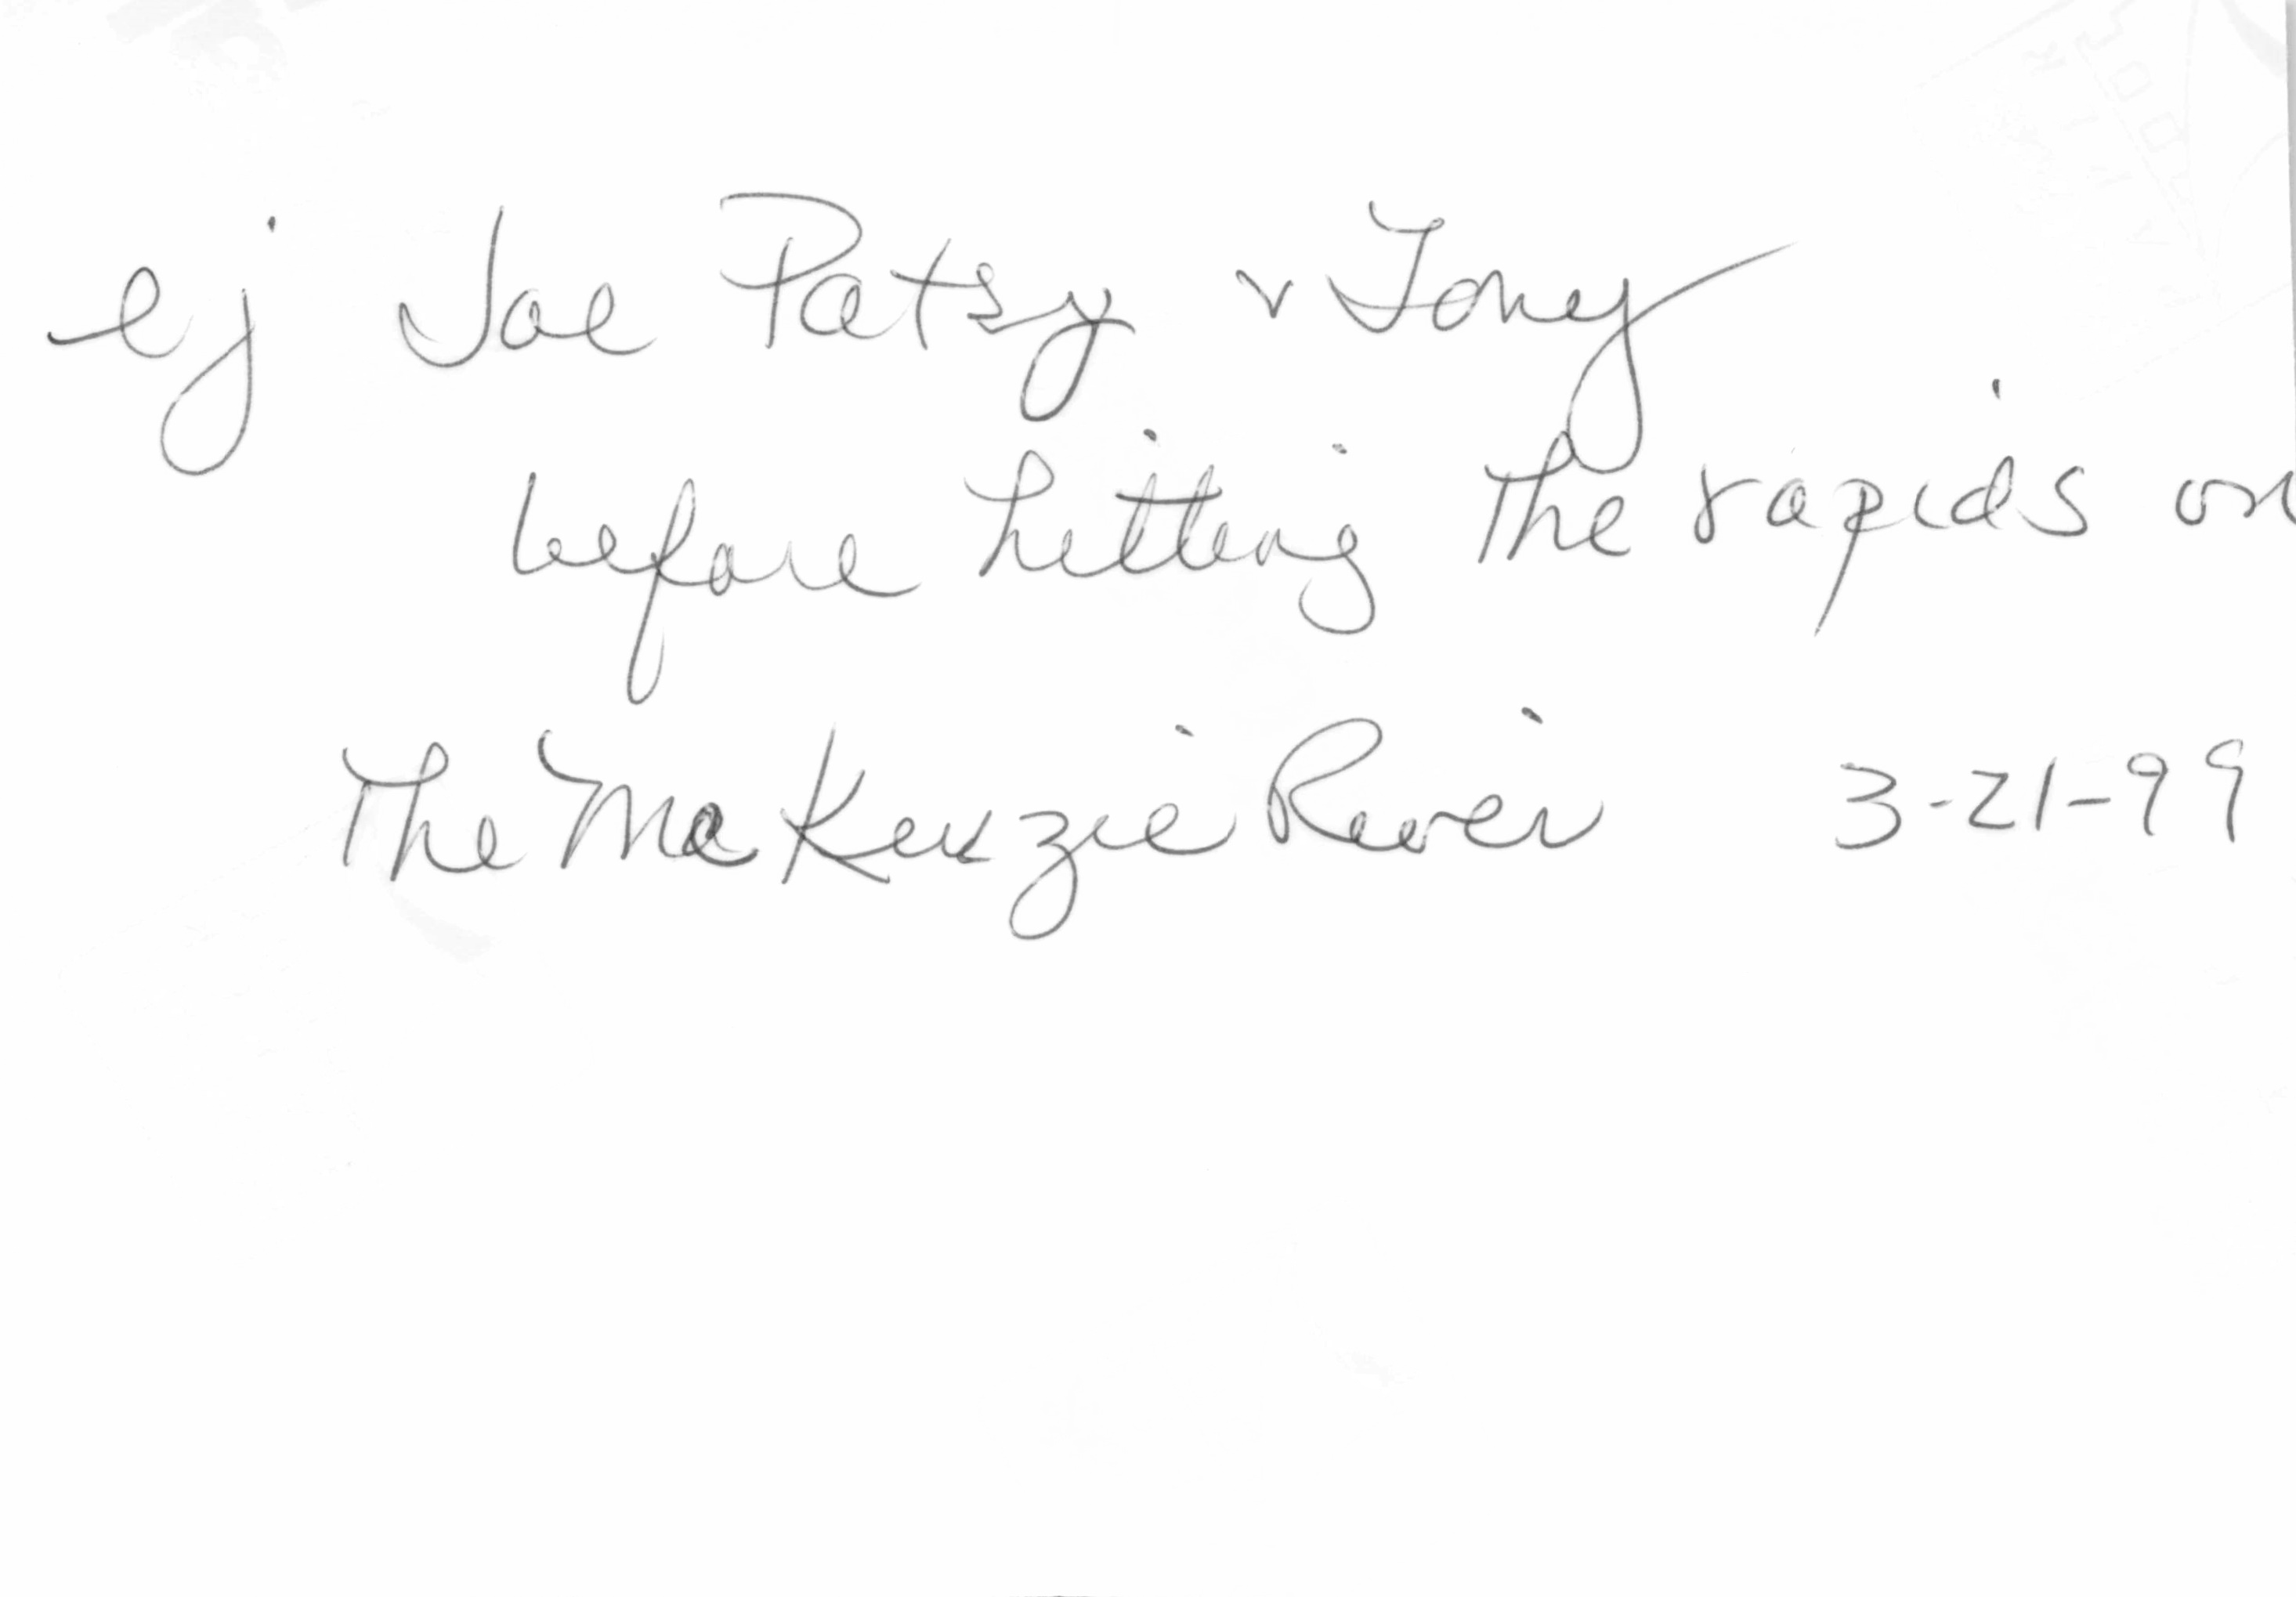 ej Joe Patsy & Tony
before hitting the rapids on
The McKenzie River 3-21-99